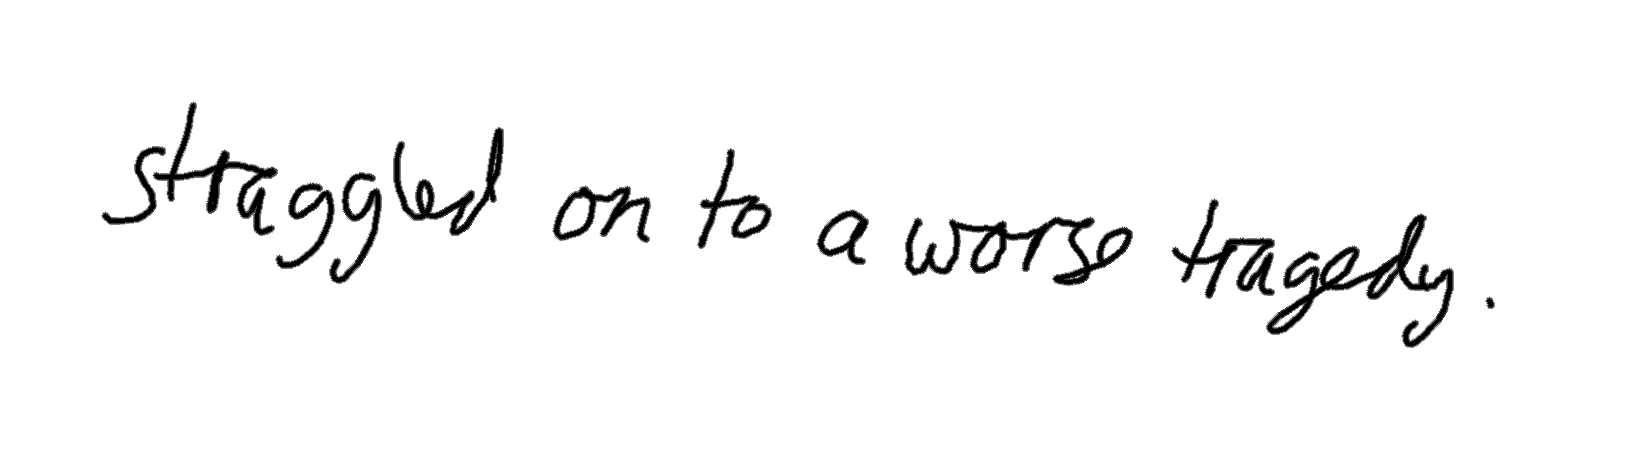 straggled on to a worse tragedy.